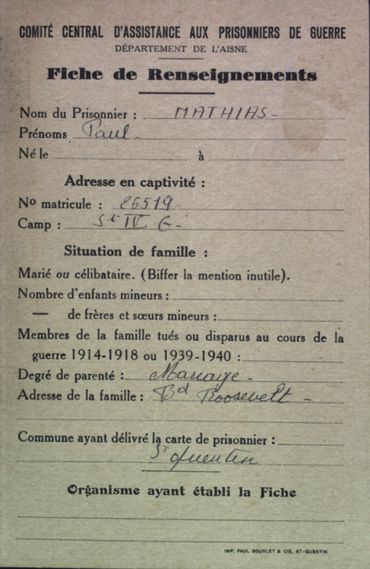 COMITÉ CENTRAL D'ASSISTANCE AUX PRISONNIERS DE GUERRE
DÉPARTEMENT DE L'AISNE
Fiche de Renseignements
Nom du Prisonnier : MATHIAS -
Prénoms Paul
Né le à
Adresse en captivité :
No matricule : 86519
Camp : IV G -
Situation de famille :
Marié ou célibataire. (Biffer la mention inutile).
Nombre d'enfants mineurs :
— de frères et sœurs mineurs :
Membres de la famille tués ou disparus au cours de la
guerre 1914-1918 ou 1939-1940 :
Degré de parenté :
Adresse de la famille : Bd Roosevelt -
Commune ayant délivré la carte de prisonnier :
St Quentin
Organisme ayant établi la Fiche
IMP. PAUL BOURLET & CIE, ST-QUENTIN